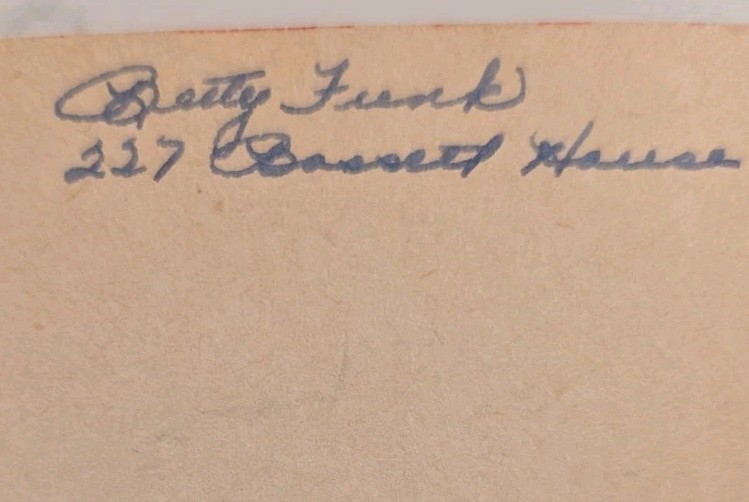 Betty Funk
227 Bassett House